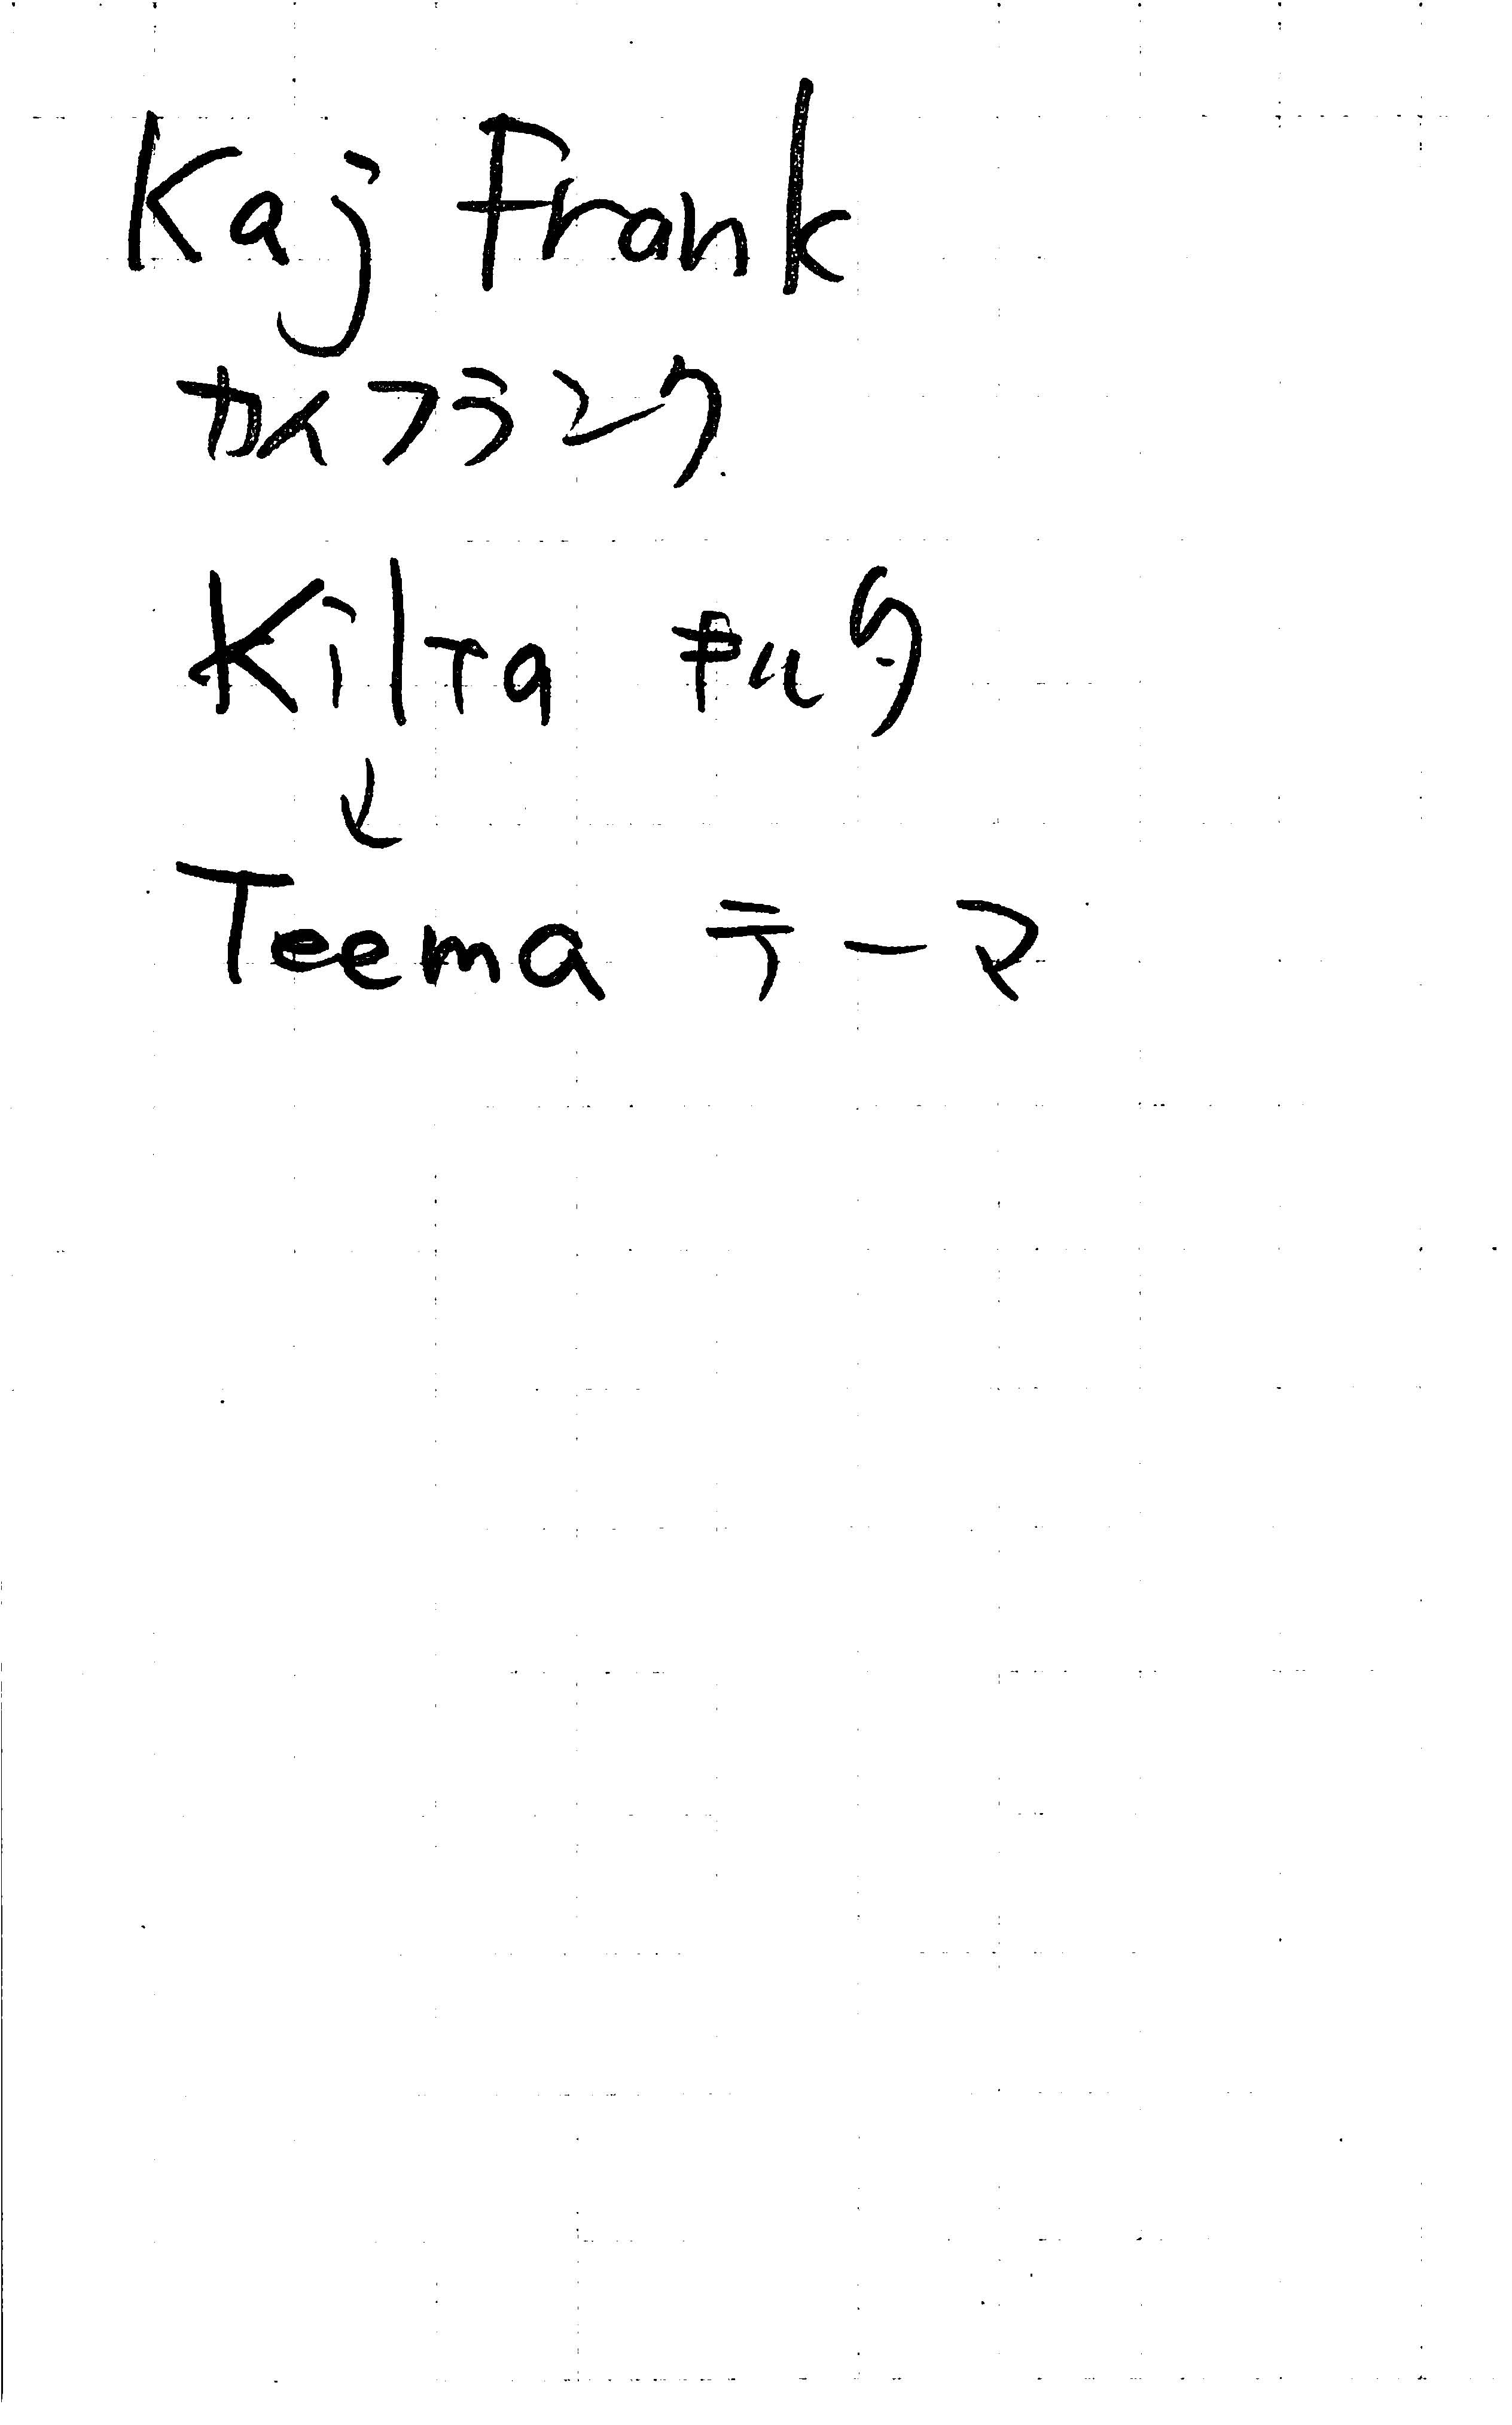 Kaj Frank
カイフランク
Kilta キルタ
↓
Teema テーマ